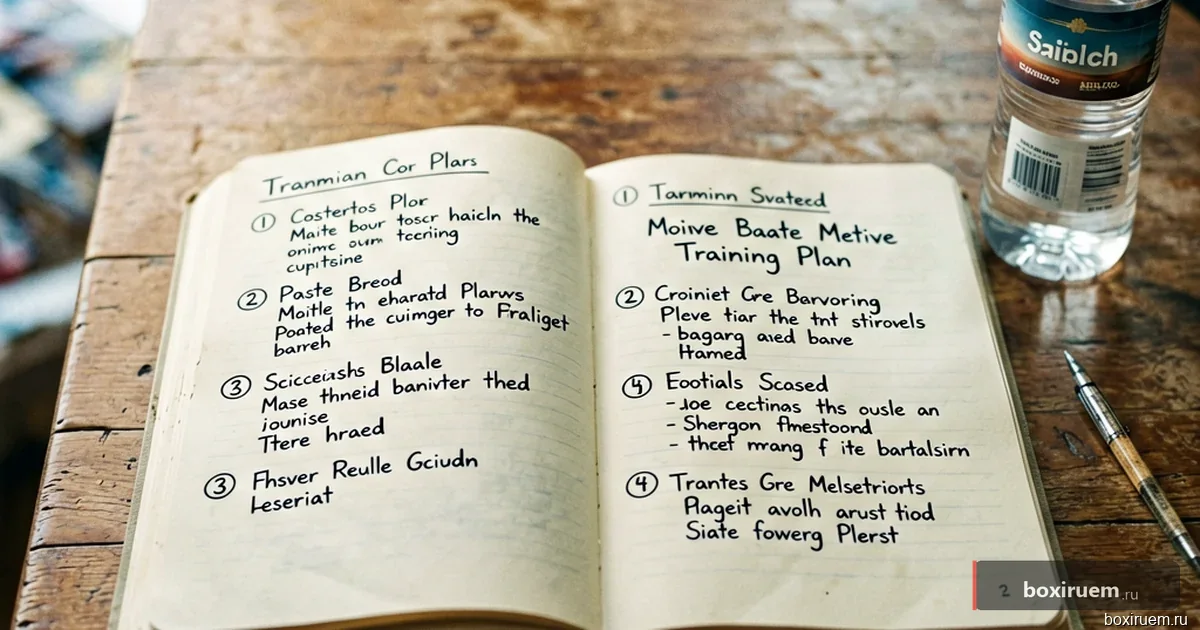 Tranmian Cor Plars
① Costertos Plor
Maite bour toscr haicln the
onimc oum tccrinyg
cupitsine
② Paste Breod
Maitle tn eharatd Plarws
Poated the cuimger to Fraliget
barreh
③ Scicceiashs Blaale
Mase thneid banivter thed
jounise
Ttere hraed
③ Fhsver Reulle Gciudn
Leseriat
① Tarminn Svateed
Moiive Baate Metive
Training Plan
② Croiniet Gre Barvoring
Pleve tiar the tnt stirovels
- bagarg aied baive
Hamed
④ Eootials Scased
- Joe cectinas ths ousle an
- Shergon fmestoond
- thcef mrang f ite bartalsirn
④ Trantes Gre Melsetriorts
Plageit avolh arust tiod
Siate fowerg Plerst
Saiblch
2 boxiruem.ru
boxiruem.ru